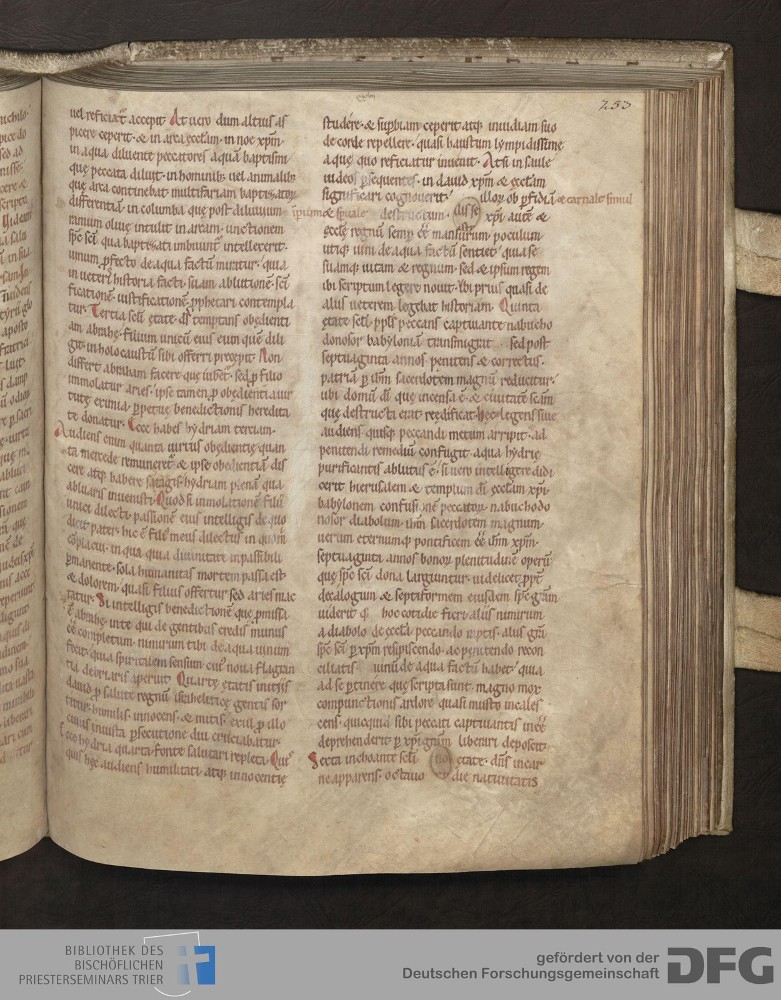 253
uel reficiat᷑ accepit. At uero dum altius as
picere ceperit. & in arca eccƚam. in noe xp̄m.
in aqua diluente peccatores aquā baptismi
quę peccata diluit. in hominib; uel animalib;
quę arca continebat multifariam baptizatoꝝ
differentiā. in columba quę post diluuium
ramum oliuę intulit in arcam. unctionem
sp̄c sc̄i qua baptizati imbuunt᷑ intellexerit.
uinum ꝓfecto de aqua factū miratur. quia
in ueteri historia facti suam ablutionē. sc̄i
ficationē. iustificationē. ꝓphetari contempla
tur. Tertia scƚi ętate. dſ temptans obędienti
am abrahę. filium unicū eius eum quē dili
git. in holocaustū sibi offerri pręcepit. Non
differt abraham facere quę iubet᷑. sed ꝓ filio
immolatur aries. ipse tamen ꝓ obędientia uir
tute eximia. ꝑpetuę benedictionis heredita
te donatur. Ecce habes hydriam tertiam.
Audiens enim quanta uirtus obędientię. quan
ta mercede remuneret᷑. & ipse obędientiā dis
cere atqꝫ habere satagis. hydriam plenā qua
abluaris inuenisti. Quod si in immolatione filii
unici dilecti passionē eius intelligis de quo
dicit pater. hic ē filius meus dilectus in quo m̄
cōplacui. in qua quia diuinitate inpassibili
ꝑmanente. sola humanitas mortem passa est
& dolorem. quasi filius offertur sed aries mac
tatur. Si intelligis benedictionē quę ꝓmissa
ē abrahę. in te qui de gentibus credis munus
eē completum. nimirum tibi de aqua uinum
fecit. quia spiritalem sensum cui᷒ noua flagran
tia debriaris aperuit. Quartę ętatis initiis
dauid ꝓ saule regnū israheliticę gentis sor
titur. humilis. innocens. & mitis. exul ꝓ illo
cuius iniusta ꝑsecutione diu cruciabatur.
Ecce hydria quarta fonte salutari repleta. Qui
quis hęc audiens humilitati atqꝫ innocentię
studere. & suꝑbiam ceperit atqꝫ inuidiam suo
de corde repellere. quasi haustum lympidissimę
aquę quo reficiatur inuenit. At si in saule
iudeos ꝑsequentes. in dauid xp̄m & eccƚam
significari cognouerit. illoꝝ ob ꝑfidiā & carnale simul
ip̄ium & sp̄itale destructum. duisse xp̄i autē &
eccƚę regnū semꝑ eē mansurum. poculum
utiqꝫ uini de aqua factū sentiet. quia se
suamqꝫ uitam & regnum. sed & ipsum regem
ibi scriptum legere nouit. ubi prius quasi de
aliis ueterem legebat historiam. Quinta
ętate scƚi. ppƚs peccans captiuante nabucho
donosor babyloniā transmigrat. sed post
septuaginta annos penitens & correctus.
patriā ꝑ ih̄m sacerdotem magnū reducitur.
ubi domū dī quę incensa ē. & ciuitatē sc̄am
quę destructa erat reędificat. Hęc legens siue
audiens quisqꝫ peccandi metum arripit. ad
penitendi remediū confugit. aqua hydrię
purificantis ablutus ē. si uero intelligere didi
cerit hierusalem & templum dī eccƚam xp̄i.
babylonem confusionē peccatoꝝ. nabuchodo
nosor diabolum. ih̄m sacerdotem magnum.
uerum eternumqꝫ pontificem eē ih̄m xp̄m.
septuaginta annos bonoꝝ plenitudinē operū
quę sp̄c sc̄i dona larguntur. uidelicet ꝓpt᷑
decalogum & septiformem eiusdem sp̄c grām
uiderit qꝫ hoc cotidie fieri. aliis nimirum
a diabolo de eccƚa peccando raptis. aliis grā
sp̄c sc̄i ꝑ xp̄m resipiscendo ac penitendo recon
ciliatis. uinū de aqua factū habet. quia
ad se ꝑtinere quę scripta sunt. magno mox
compunctionis ardore quasi musto incales
cens. quicquid sibi peccati captiuantis inēē
deprehenderit. ꝑ xp̄i grām liberari deposcit.
Sexta inchoante scƚi ętate. dn̄s in car
ne apparens. octauo die natiuitatis
BIBLIOTHEK DES
BISCHÖFLICHEN
PRIESTERSEMINARS TRIER
gefördert von der
Deutschen Forschungsgemeinschaft
DFG